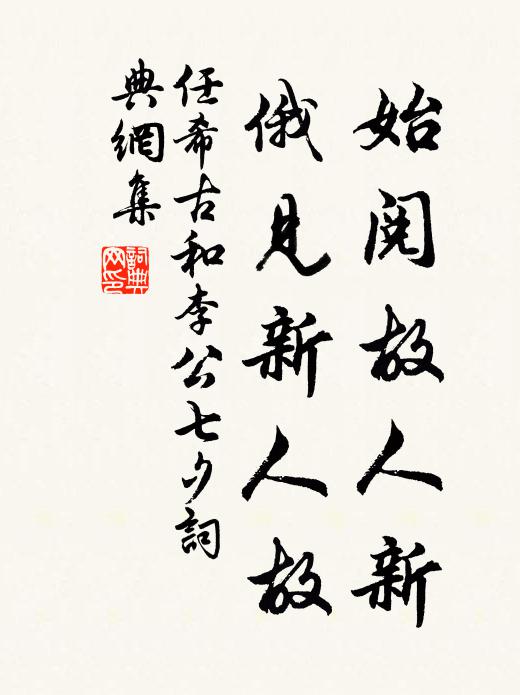 始閱故人新
俄見新人故
任希古和李公七夕詞
典網集
詞典網印